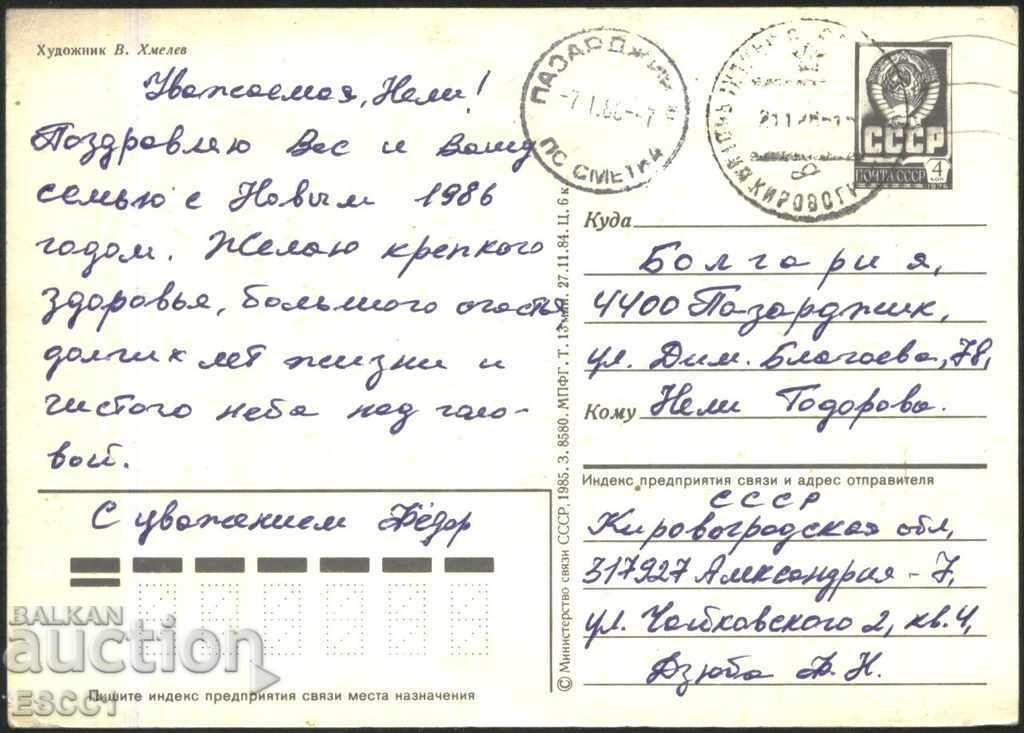 Художник В. Хмелев
Уважаемая, Нели!
Поздравляю Вас и Вашу
семью с Новым 1986
годом. Желаю крепкого
здоровья, большого счастья
долгих лет жизни и
чистого неба над голо-
вой.
С уважением Фёдор
BALKAN
auction
ESCCT
Пишите индекс предприятия связи места назначения
© Министерство связи СССР, 1985. З. 8580. МПФГ. Т. 13 млн. 27.11.84. Ц. 6 к.
ПАЗАРДЖИК
ПС СМЕТКИ
КИРОВОГ
СССР
ПОЧТА СССР
4
КОП
1976
Куда
Болгария,
4400 Пазарджик,
ул. Дим. Благоева, 78,
Кому Нели Тодорова.
Индекс предприятия связи и адрес отправителя
СССР
Кировоградская обл,
317927 Александрия-7,
ул. Чайковского 2, кв. 4,
Дзюба Ф. Н.